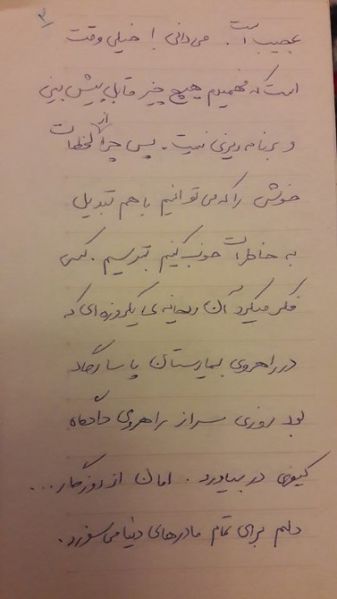 ۳
عجیب است. می دانی! خیلی وقت
است که فهمیدم هیچ چیز قابل پیش بینی
و برنامه ریزی نیست. پس چرا از لحظات
خوشی را که می توانیم با هم تبدیل
به خاطرات خوب کنیم بترسیم. کسی
فکر میکرد آن ریحانه ی یکروزه ای که
در راهروی بیمارستان پاسارگاد
بود روزی سر از راهروی دادگاه
کیفری در بیاورد. امان از روزگار...
دلم برای تمام مادرهای دنیا می سوزد.